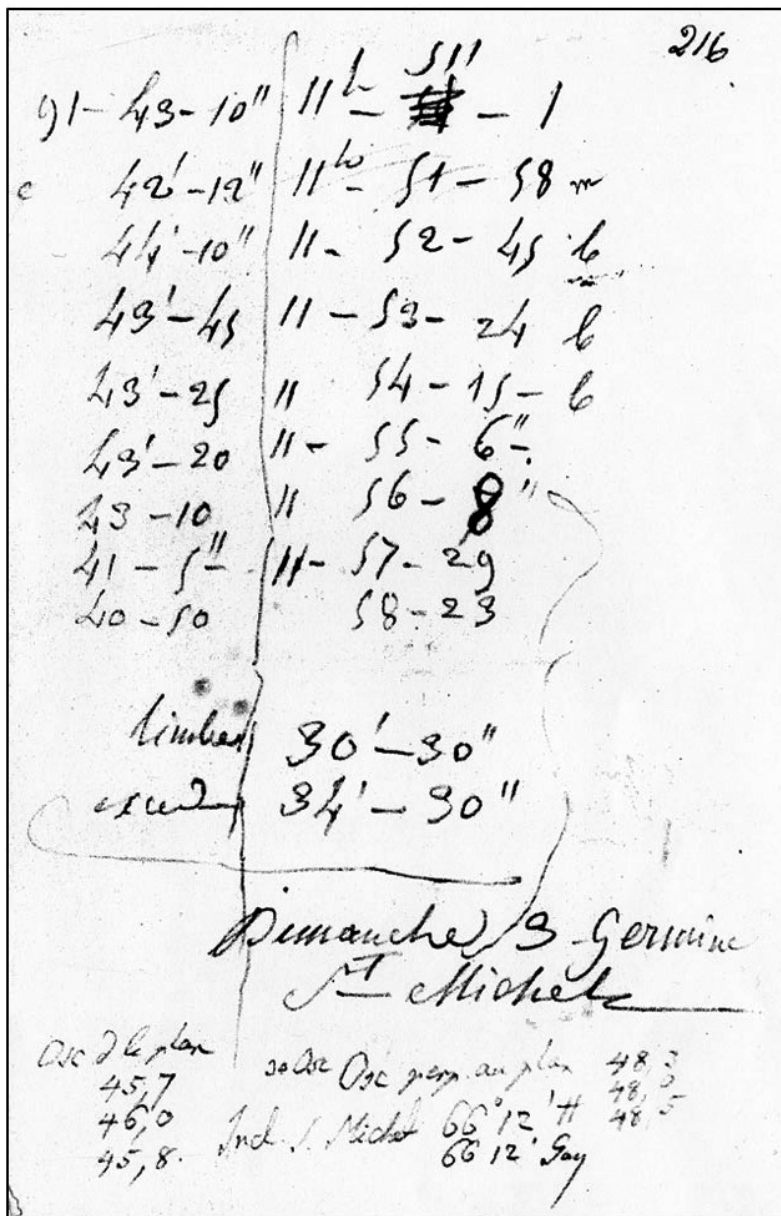 216
511
91-43-10" 11h - - 1
42'-12" 11h - 51-58 m
44'-10" 11- 52-45 b
43'-45 11-53-24 b
43'-25 11 54-15-b
43'-20 11- 55-6"-
43-10 11 56-8"
41-5"- 11- 57-29
40-50 58-23
limbe 30'-30"
34'-30"
Dimanche 3 Germinal
St Michel
Osc d le plan Osc perp. au plan 48,3
45,7 48,
46,0 Incl. S. Michel 66°12' H 48,5
45,8. 66 12' Gay